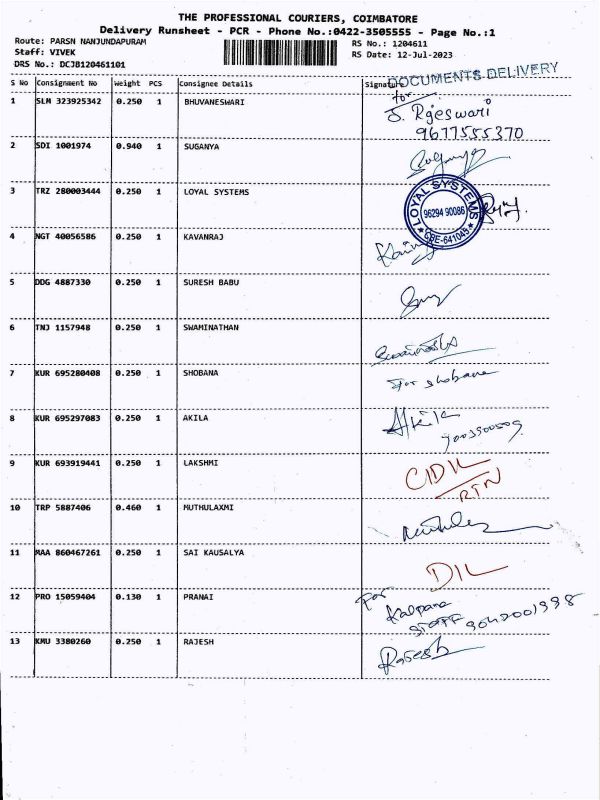 THE PROFESSIONAL COURIERS, COIMBATORE
Delivery Runsheet - PCR - Phone No.:0422-3505555 - Page No.:1
Route: PARSN NANJUNDAPURAM RS No.: 1204611
Staff: VIVEK RS Date: 12-Jul-2023
DRS No.: DCJB120461101
DOCUMENTS DELIVERY
S No Consignment No Weight PCS Consignee Details Signature
1 SLM 323925342 0.250 1 BHUVANESWARI for
S. Rajeswari
9677555370
2 SDI 1001974 0.940 1 SUGANYA Suganya
3 TRZ 280003444 0.250 1 LOYAL SYSTEMS
LOYAL SYSTEMS
96294 90086
CBE-641045
4 NGT 40056586 0.250 1 KAVANRAJ
5 DDG 4887330 0.250 1 SURESH BABU
6 TNJ 1157948 0.250 1 SWAMINATHAN
7 KUR 695280408 0.250 1 SHOBANA For shobana
8 KUR 695297083 0.250 1 AKILA Akila
9 KUR 693919441 0.250 1 LAKSHMI CIDIL
RTN
10 TRP 5887406 0.460 1 MUTHULAXMI
11 MAA 860467261 0.250 1 SAI KAUSALYA DIL
12 PRO 15059404 0.130 1 PRANAI For
Kalpana
STAFF
13 KMU 3380260 0.250 1 RAJESH Rajesh